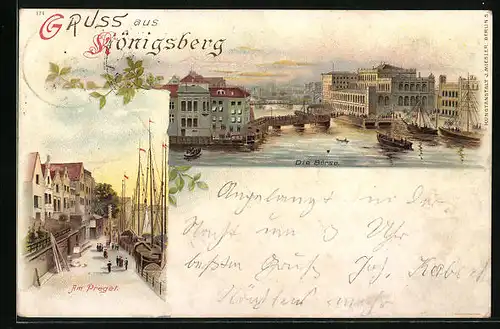 174
Gruss aus
Königsberg
Die Börse.
Am Pregel.
KUNSTANSTALT J. MIESLER, BERLIN S.
Angelangt in der
Nacht um 3 Uhr
besten Gruß